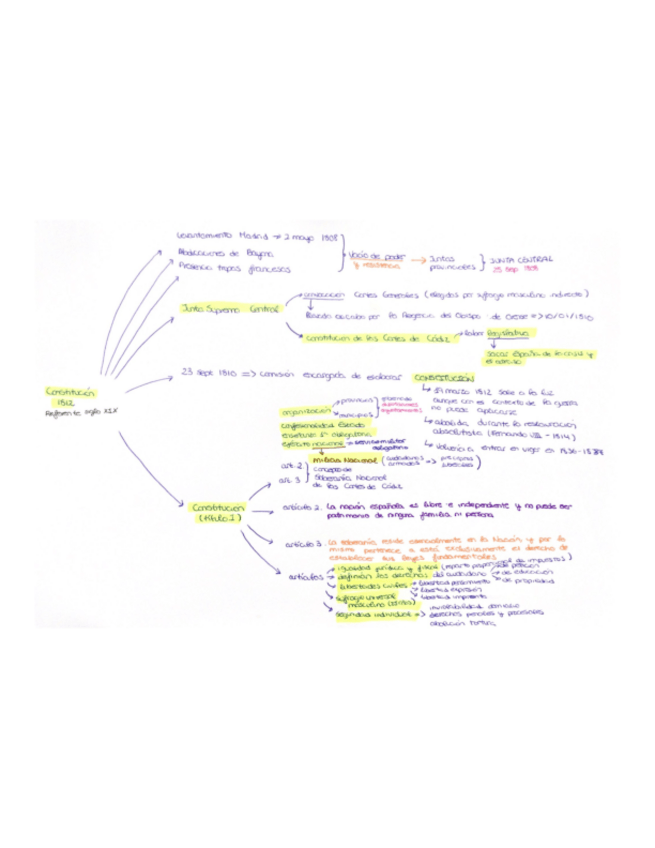 Levantamiento Madrid → 2 mayo 1808
Abdicaciones de Bayona
Presencia tropas francesas
Vacío de poder
y resistencia
→ Juntas
provinciales
JUNTA CENTRAL
25 sep 1808
Junta Suprema Central
convocación Cortes Generales (elegidas por sufragio masculino indirecto)
por la Regencia del Obispo de Orense => 10/01/1810
constitucion de las Cortes de Cádiz → labor legislativa
sacar España de la crisis y
23 sept 1810 => comisión encargada de elaborar CONSTITUCIÓN
↳ 19 marzo 1812 sale a la luz
aunque con el contexto de la guerra
no puede aplicarse
↳ abolida durante la restauración
absolutista (Fernando VII - 1814)
↳ Volvería a entrar en vigor en 1836-1837
Constitución
1812
Referente siglo XIX
organización
provincias
municipios
diputaciones
ayuntamientos
confesionalidad Estado
enseñanza 1ª obligatoria
ejército nacional → servicio militar
obligatorio
milicia Nacional (ciudadanos
armados =>
)
art. 2
art. 3
concepto de
Soberanía Nacional
de las Cortes de Cádiz
Constitución
(título I)
artículo 2. La nación española es libre e independiente y no puede ser
patrimonio de ninguna familia ni persona
artículo 3. La soberanía reside esencialmente en la Nación y por lo
mismo pertenece a ésta exclusivamente el derecho de
establecer sus leyes fundamentales
artículos
→ igualdad jurídica y fiscal (reparto papel de impuestos)
→ definían los derechos del ciudadano
→ de petición
→ de educación
→ de propiedad
→ libertades civiles
→ libertad pensamiento
→ libertad expresión
→ libertad imprenta
→ sufragio universal
masculino
→ seguridad individual =>
inviolabilidad domicilio
derechos penales y procesales
abolición tortura